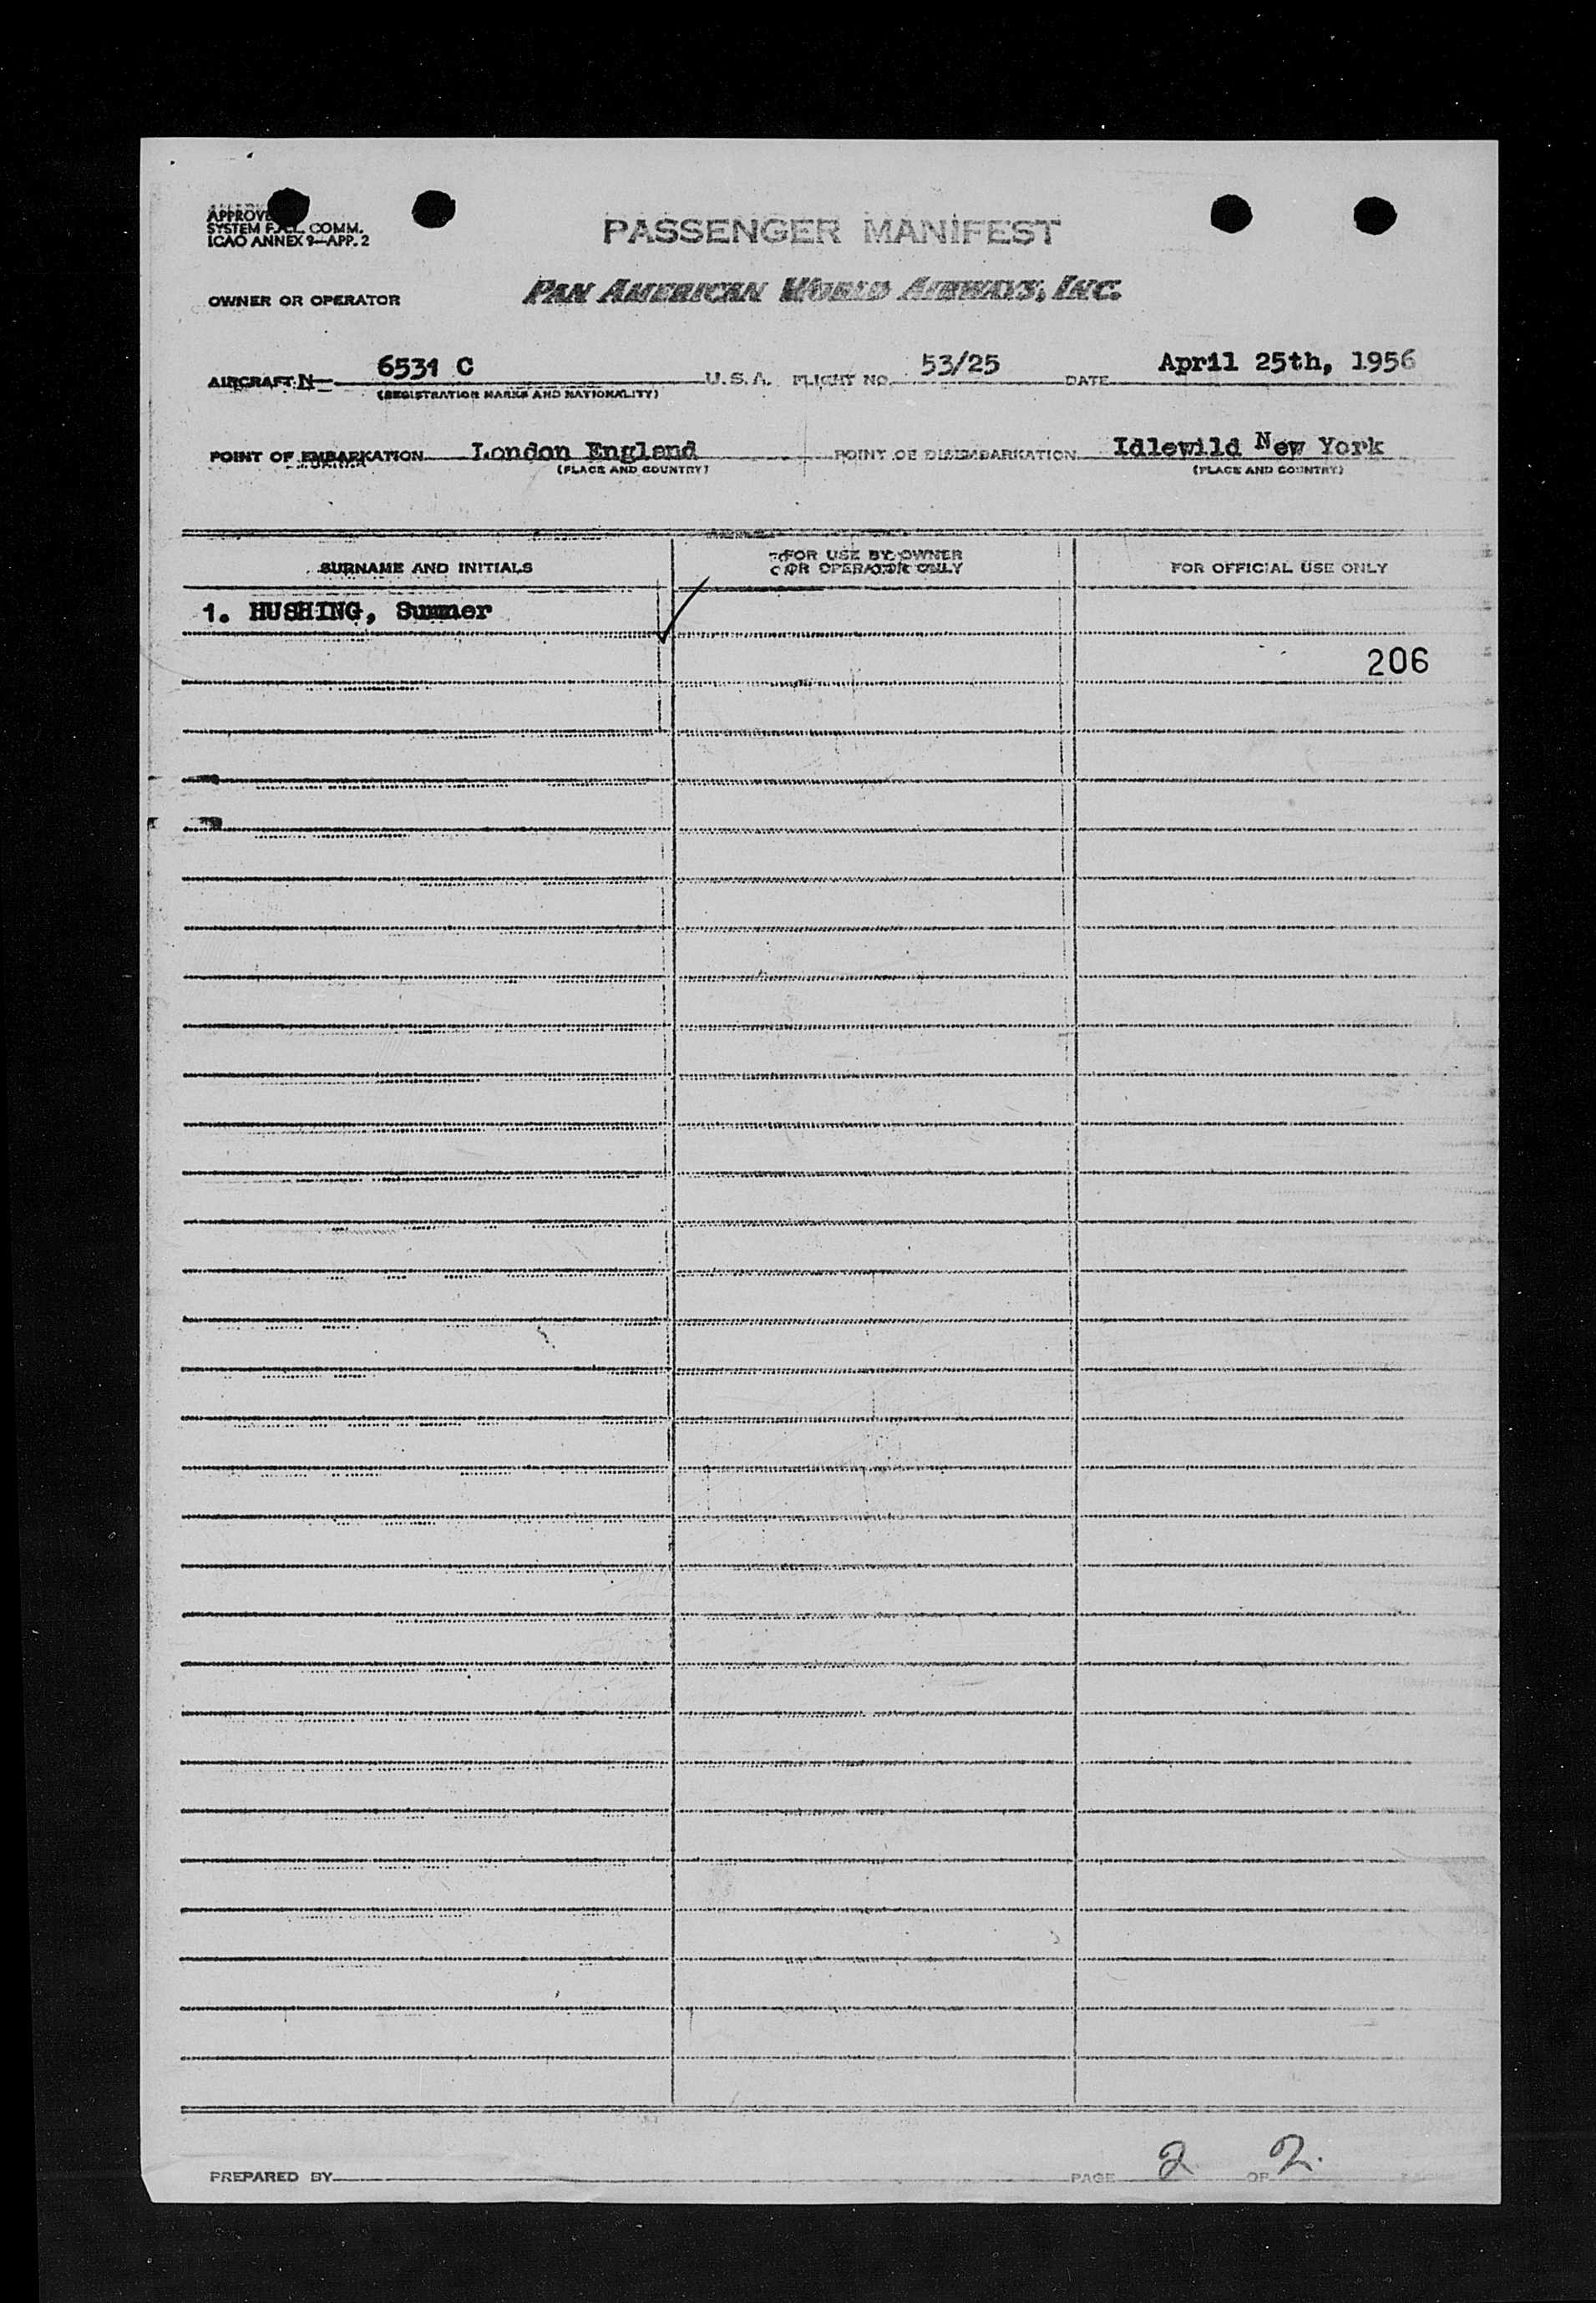 APPROVE
SYSTEM F.A.L. COMM.
ICAO ANNEX 9—APP. 2
PASSENGER MANIFEST
OWNER OR OPERATOR PAN AMERICAN WORLD AIRWAYS, INC.
AIRCRAFT N— 6531 C U.S.A. FLIGHT NO. 53/25 DATE April 25th, 1956
(REGISTRATION MARKS AND NATIONALITY)
POINT OF EMBARKATION London England POINT OF DISEMBARKATION Idlewild New York
(PLACE AND COUNTRY) (PLACE AND COUNTRY)
SURNAME AND INITIALS FOR USE BY OWNER OR OPERATOR ONLY FOR OFFICIAL USE ONLY
1. HUSHING, Sumner
206
PREPARED BY PAGE 2 OF 2.